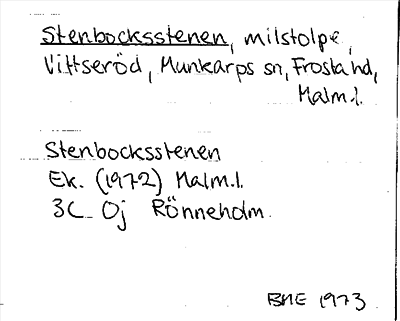 Stenbocksstenen, milstolpe,
Vittseröd, Munkarps sn, Frosta hd,
Malm.l.
Stenbocksstenen
Ek. (1972) Malm.l.
3C Oj Rönneholm
BME 1973